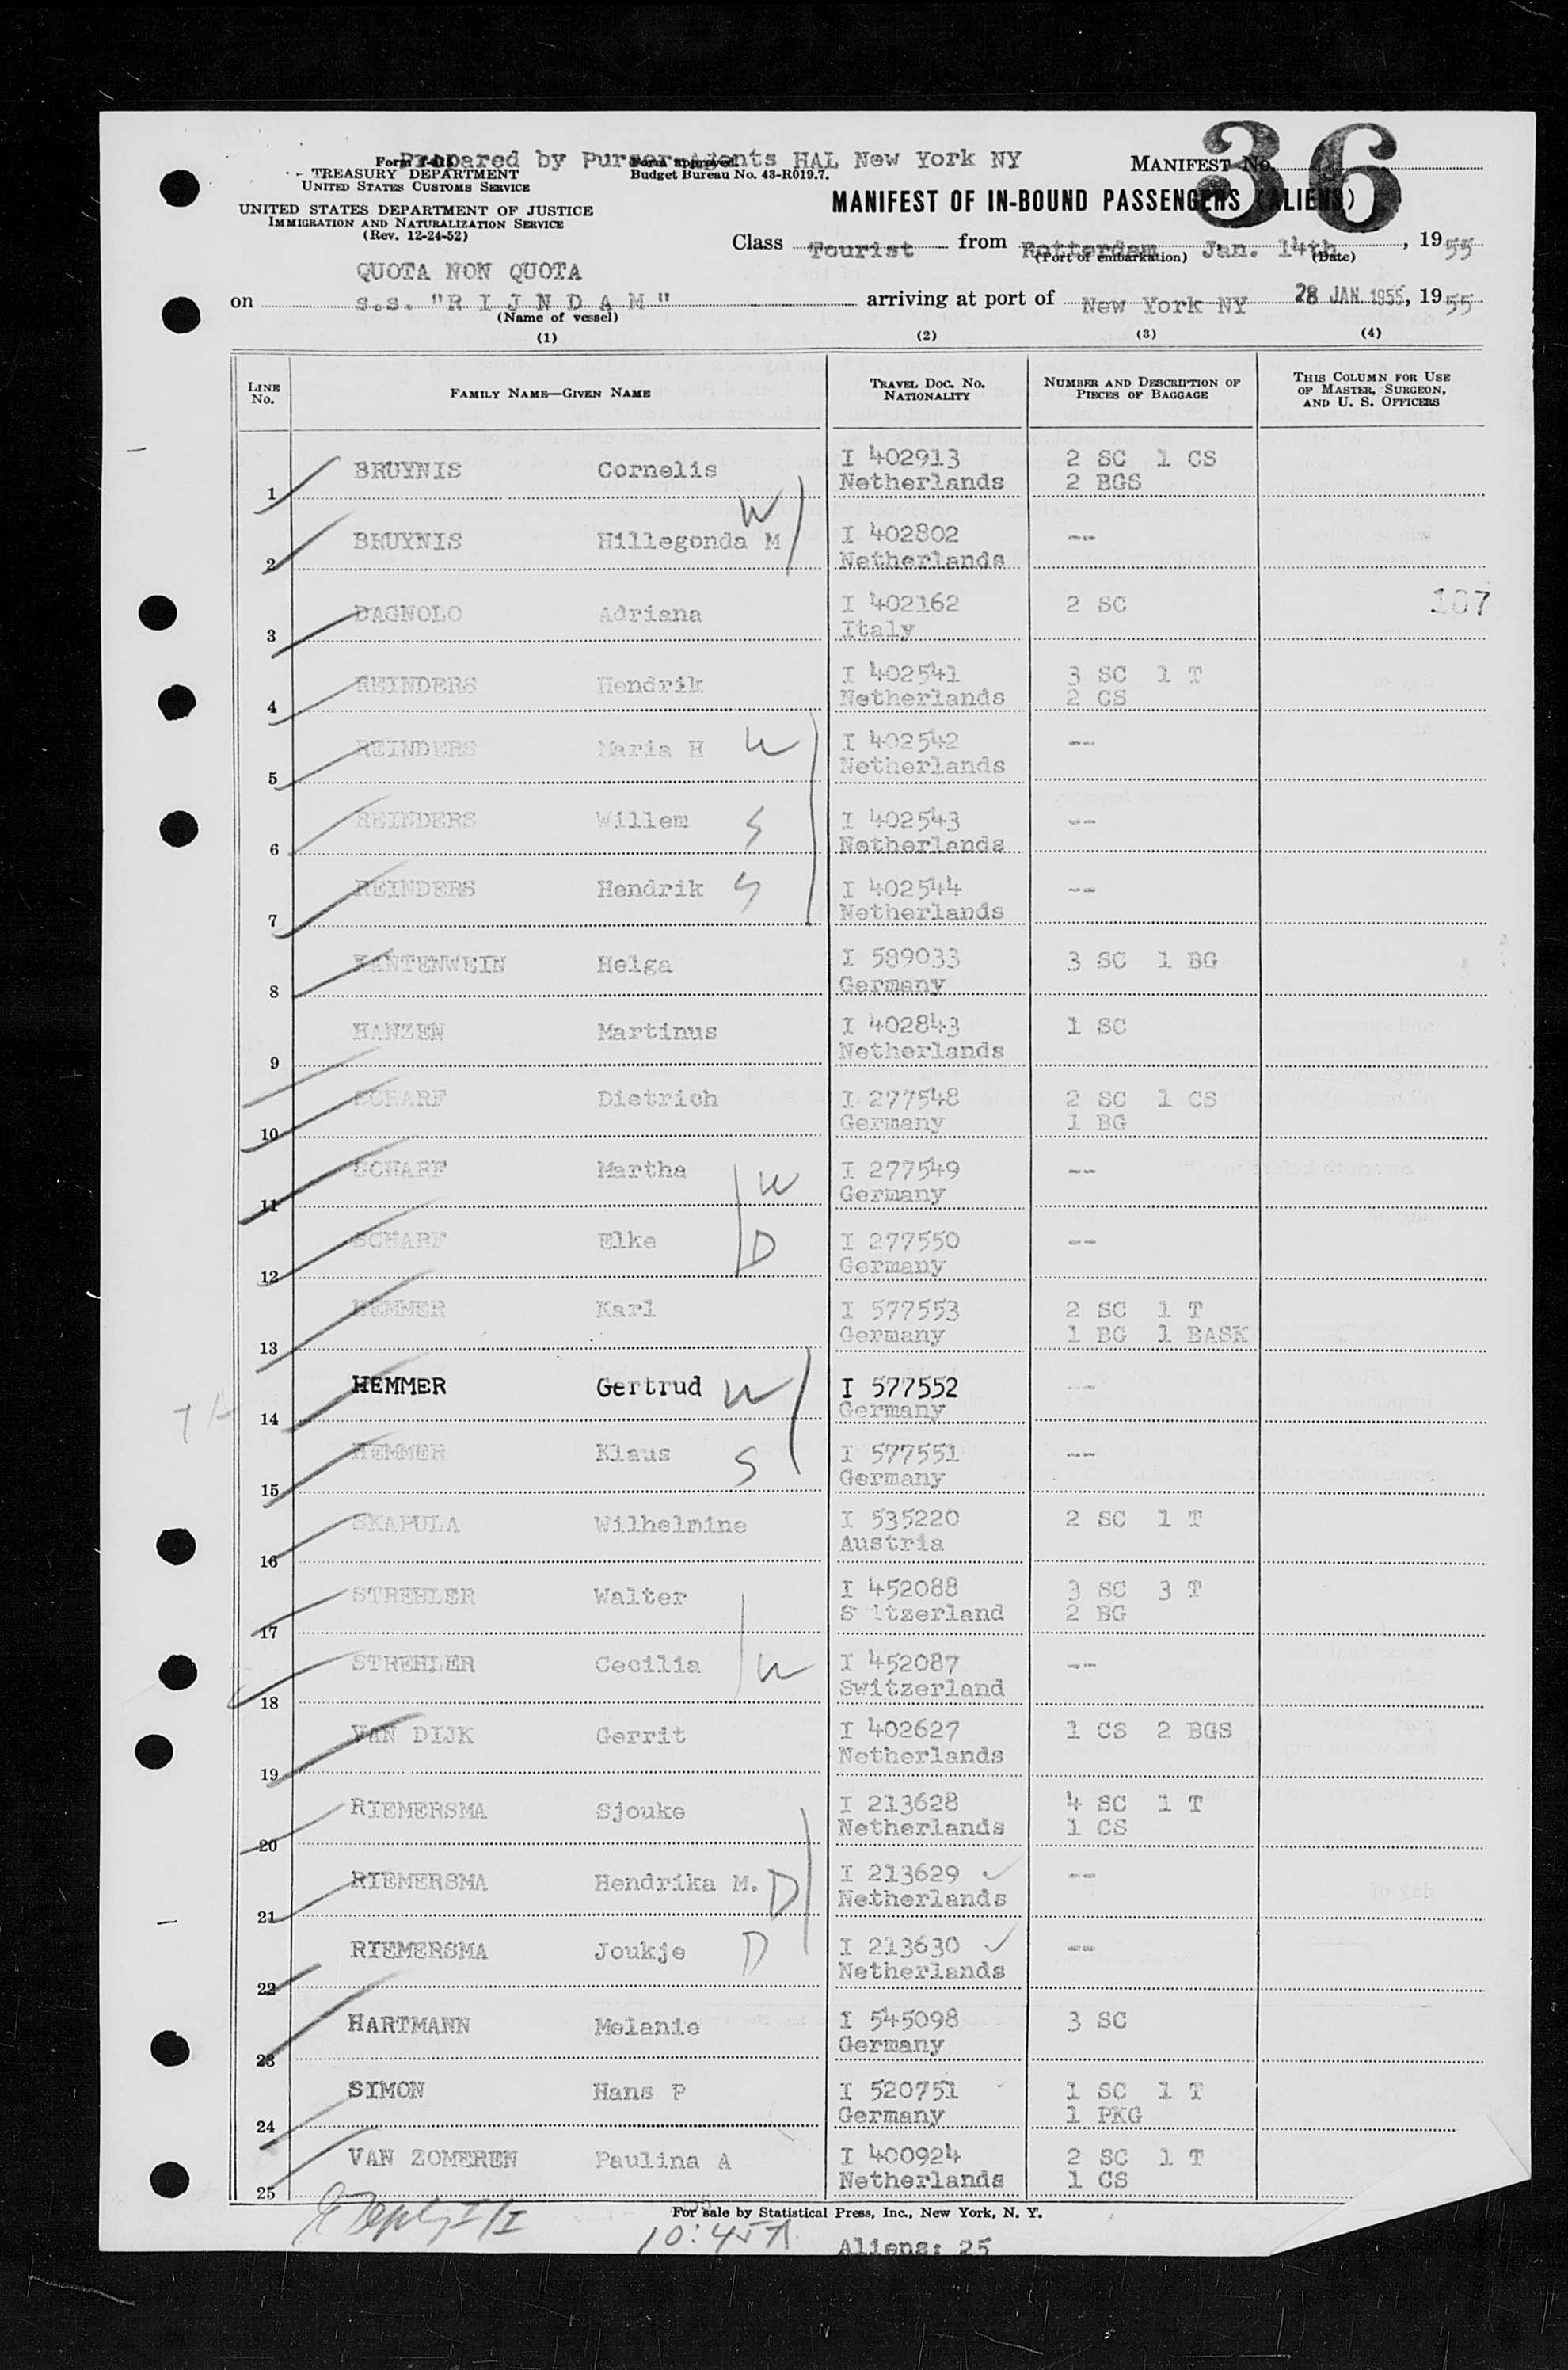 Prepared by Purser-Agents HAL New York NY
36
Form I-418
TREASURY DEPARTMENT
UNITED STATES CUSTOMS SERVICE
UNITED STATES DEPARTMENT OF JUSTICE
IMMIGRATION AND NATURALIZATION SERVICE
(Rev. 12-24-52)
Form approved.
Budget Bureau No. 43-R019.7.
MANIFEST No.
MANIFEST OF IN-BOUND PASSENGERS (ALIENS)
Class Tourist from Rotterdam Jan. 14th, 1955
(Port of embarkation) (Date)
QUOTA NON QUOTA
on s.s. "R I J N D A M" arriving at port of New York NY 28 JAN. 1955, 1955
(Name of vessel)
(1) (2) (3) (4)
LINE No. FAMILY NAME—GIVEN NAME TRAVEL DOC. No. NATIONALITY NUMBER AND DESCRIPTION OF PIECES OF BAGGAGE THIS COLUMN FOR USE OF MASTER, SURGEON, AND U. S. OFFICERS
1 BRUYNIS Cornelis I 402913 2 SC 1 CS
Netherlands 2 BGS
W
2 BRUYNIS Hillegonda M I 402802 --
Netherlands
3 DAGNOLO Adriana I 402162 2 SC 107
Italy
4 REINDERS Hendrik I 402541 3 SC 1 T
Netherlands 2 CS
5 REINDERS Maria H W I 402542 --
Netherlands
6 REINDERS Willem S I 402543 --
Netherlands
7 REINDERS Hendrik S I 402544 --
Netherlands
8 KANTENWEIN Helga I 589033 3 SC 1 BG
Germany
9 HANZEN Martinus I 402843 1 SC
Netherlands
10 SCHARF Dietrich I 277548 2 SC 1 CS
Germany 1 BG
11 SCHARF Martha W I 277549 --
Germany
12 SCHARF Elke D I 277550 --
Germany
13 HEMMER Karl I 577553 2 SC 1 T
Germany 1 BG 1 BASK
14 HEMMER Gertrud W I 577552 --
Germany
15 HEMMER Klaus S I 577551 --
Germany
16 SKAPULA Wilhelmine I 535220 2 SC 1 T
Austria
17 STREHLER Walter I 452088 3 SC 3 T
S itzerland 2 BG
18 STREHLER Cecilia W I 452087 --
Switzerland
19 VAN DIJK Gerrit I 402627 1 CS 2 BGS
Netherlands
20 RIEMERSMA Sjouke I 213628 4 SC 1 T
Netherlands 1 CS
21 RIEMERSMA Hendrika M. D I 213629 ✓ --
Netherlands
22 RIEMERSMA Joukje D I 213630 ✓ --
Netherlands
23 HARTMANN Melanie I 545098 3 SC
Germany
24 SIMON Hans P I 520751 1 SC 1 T
Germany 1 PKG
25 VAN ZOMEREN Paulina A I 400924 2 SC 1 T
Netherlands 1 CS
For sale by Statistical Press, Inc., New York, N. Y.
10:45A
Aliens: 25